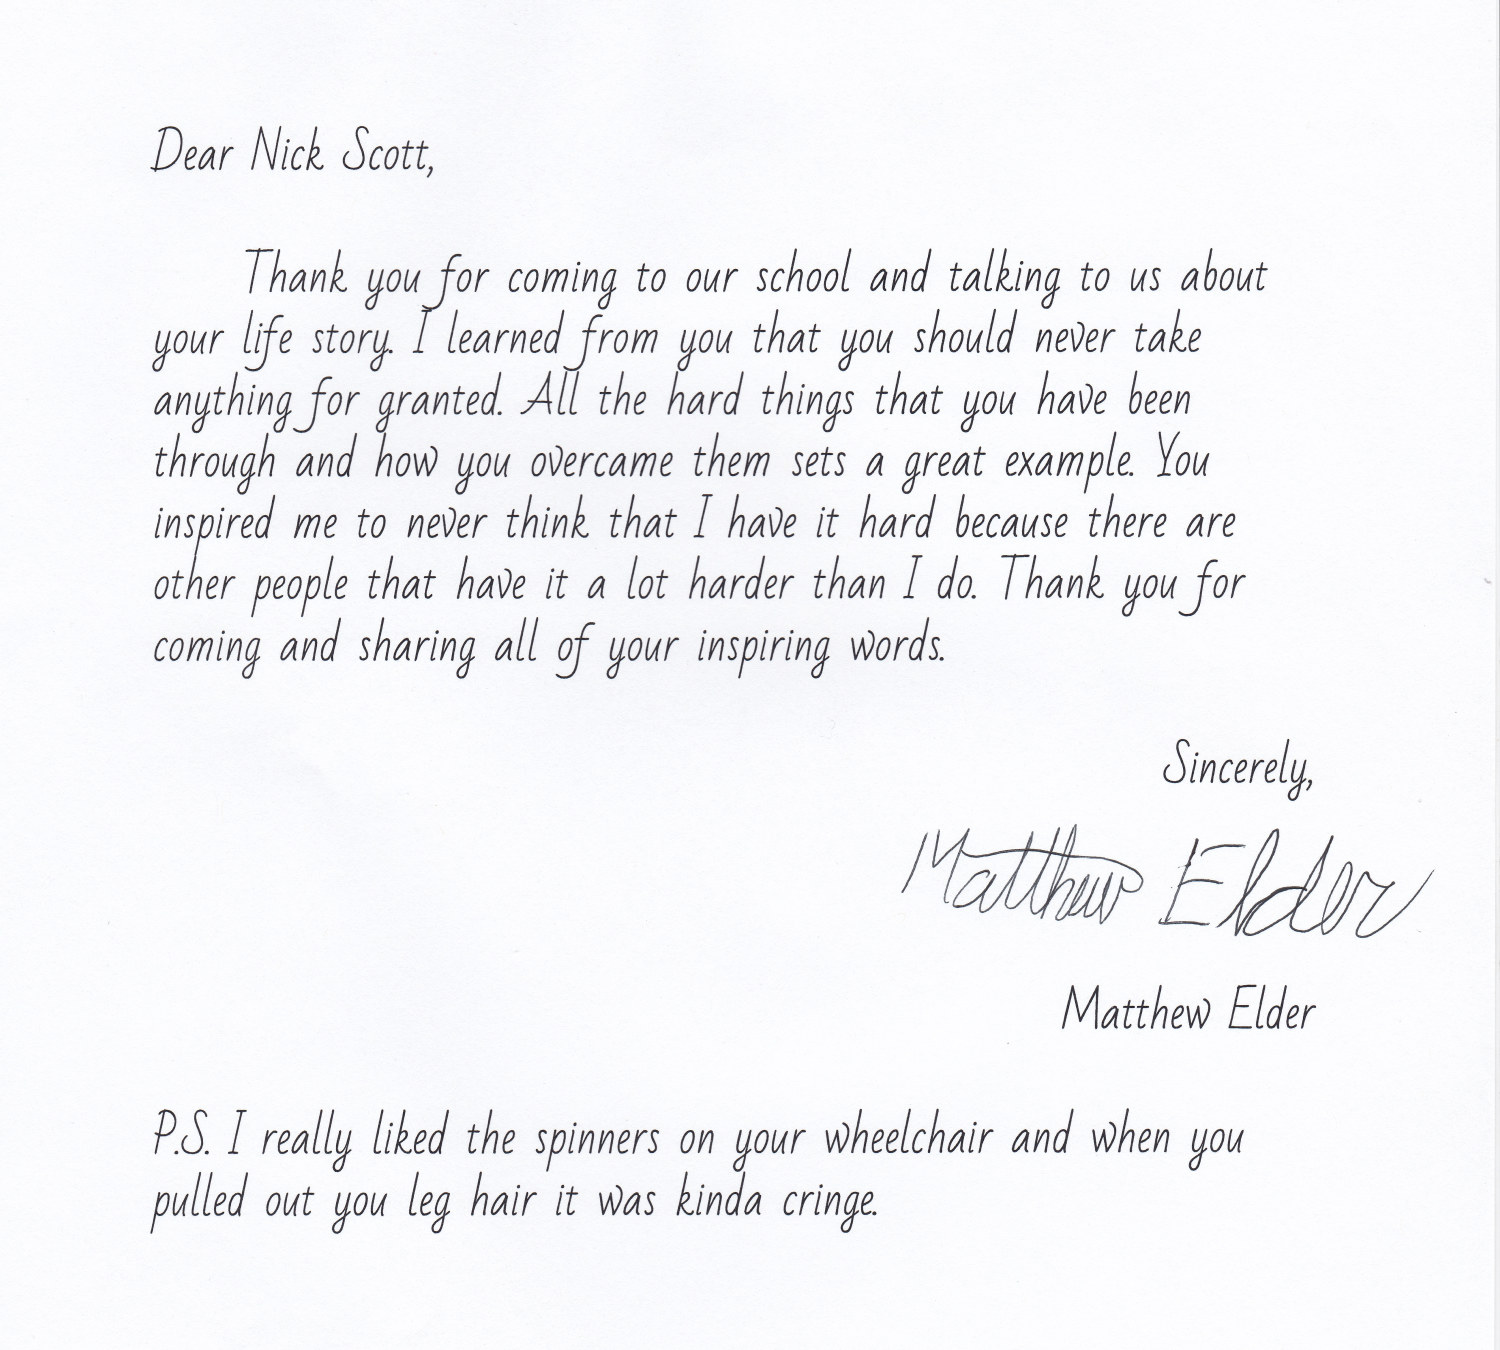 Dear Nick Scott,
Thank you for coming to our school and talking to us about
your life story. I learned from you that you should never take
anything for granted. All the hard things that you have been
through and how you overcame them sets a great example. You
inspired me to never think that I have it hard because there are
other people that have it a lot harder than I do. Thank you for
coming and sharing all of your inspiring words.
Sincerely,
Matthew Elder
Matthew Elder
P.S. I really liked the spinners on your wheelchair and when you
pulled out you leg hair it was kinda cringe.